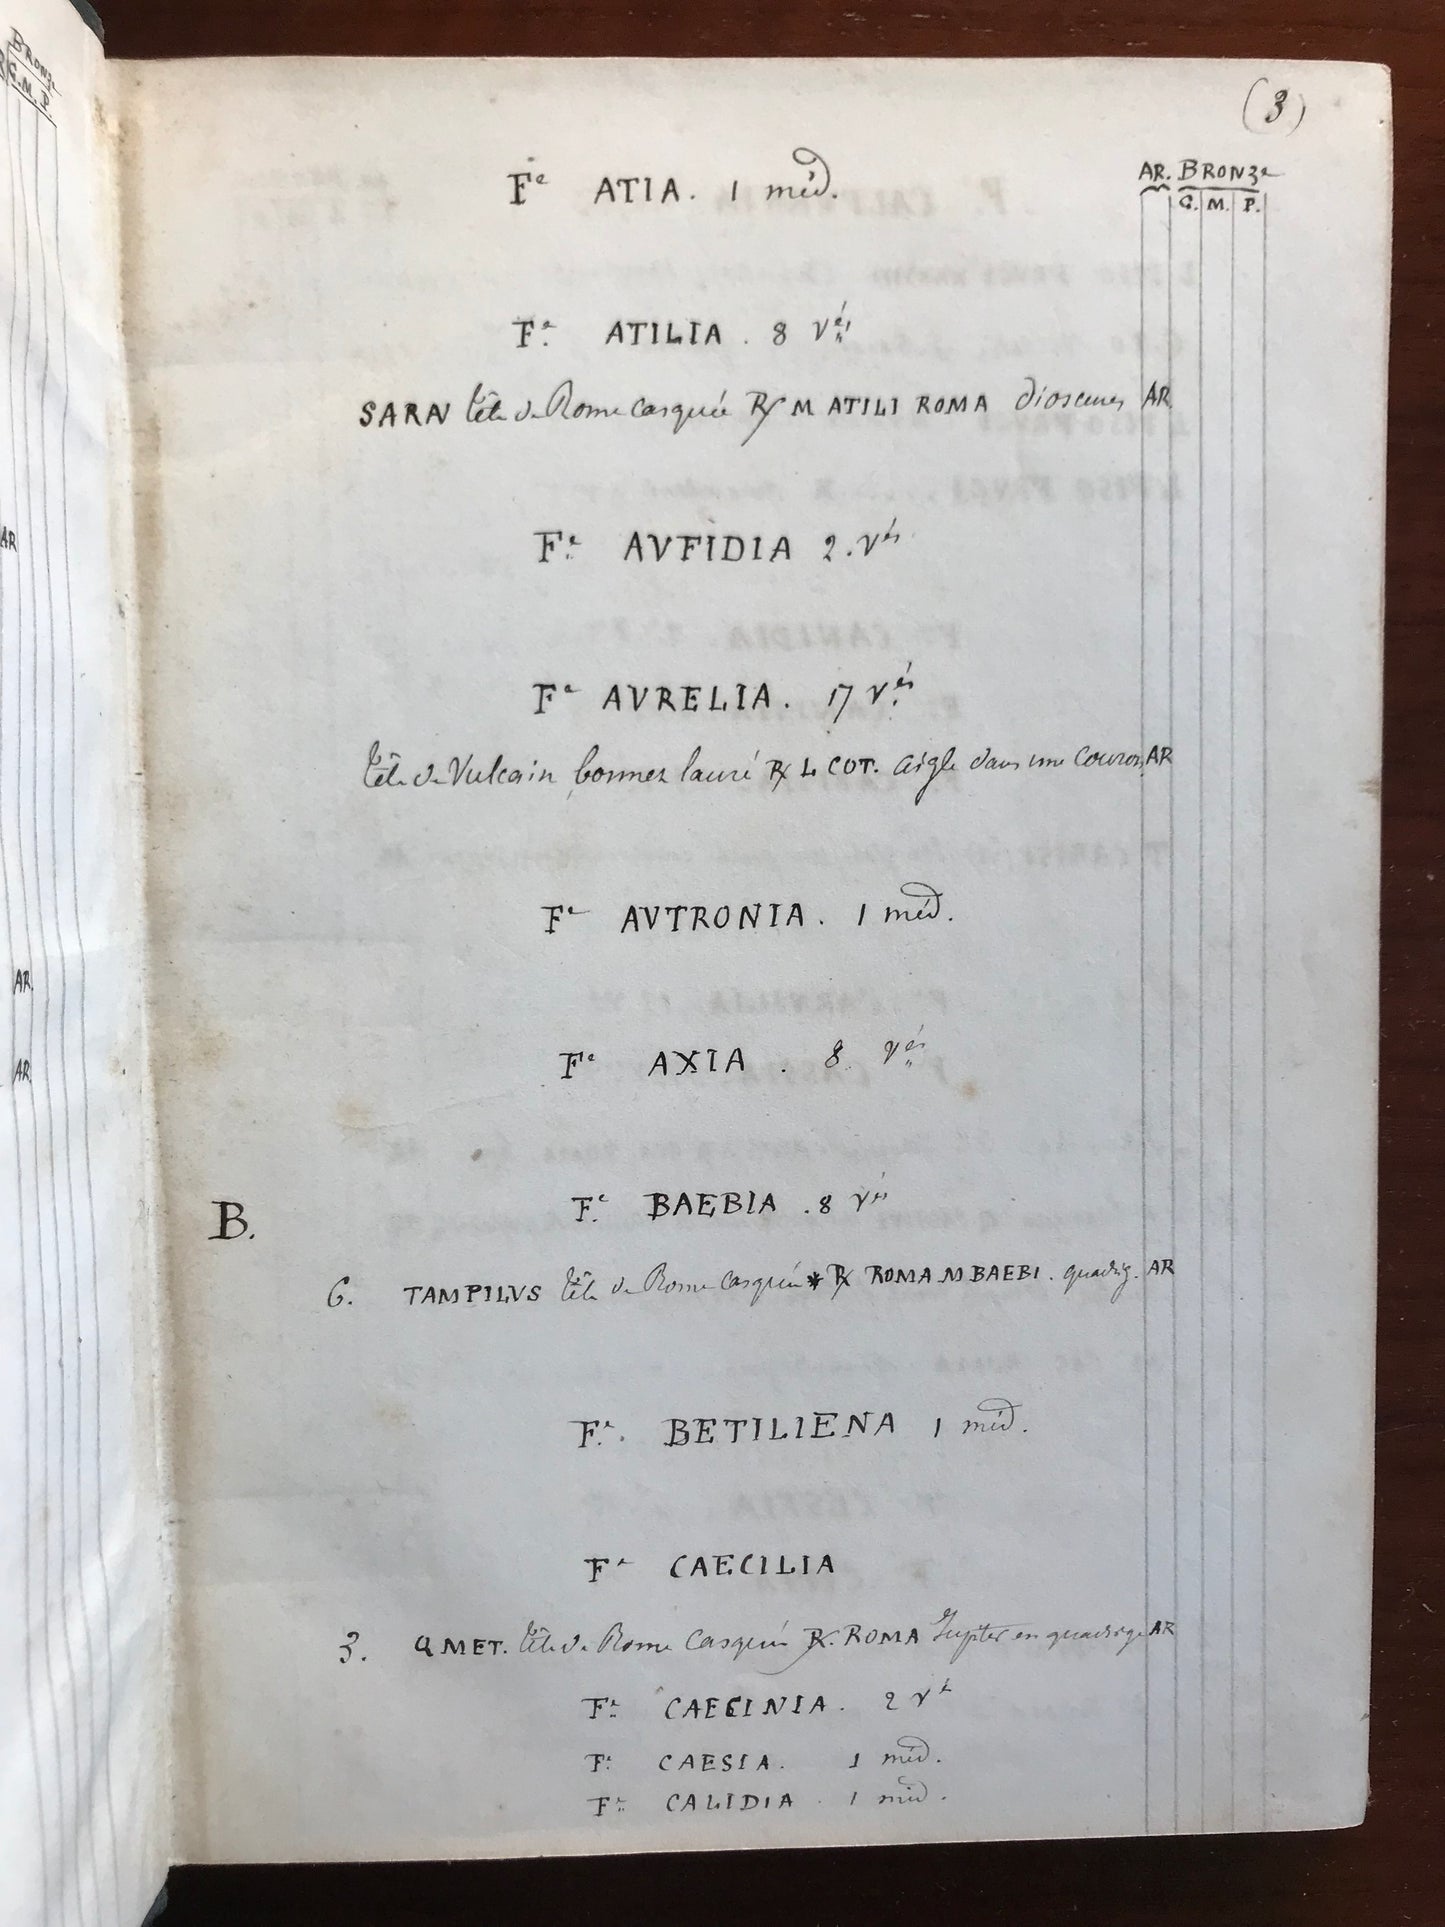 (3)
AR. BRONZe
G. M. P.
Fe ATIA. 1 méd.
Fe ATILIA. 8 vés
SARAN tête de Rome casquée R/ M ATILI ROMA dioscures AR
Fe AVFIDIA 2. vés
Fe AVRELIA. 17 vés
tête de Vulcain bonnet lauré R/ L COT. aigle dans une couron. AR
Fe AVTRONIA. 1 méd.
Fe AXIA. 8 vés
B.
Fe BAEBIA. 8 vés
6. TAMPILVS tête de Rome casquée * R/ ROMA M BAEBI. quadrig. AR
Fe BETILIENA 1 méd.
Fe CAECILIA
3. Q MET. tête de Rome casquée R/. ROMA Jupiter en quadrige AR
Fe CAECINIA. 2 vés
Fe CAESIA. 1 méd.
Fe CALIDIA. 1 méd.
BRONZe
G. M. P.
AR
AR.
AR.